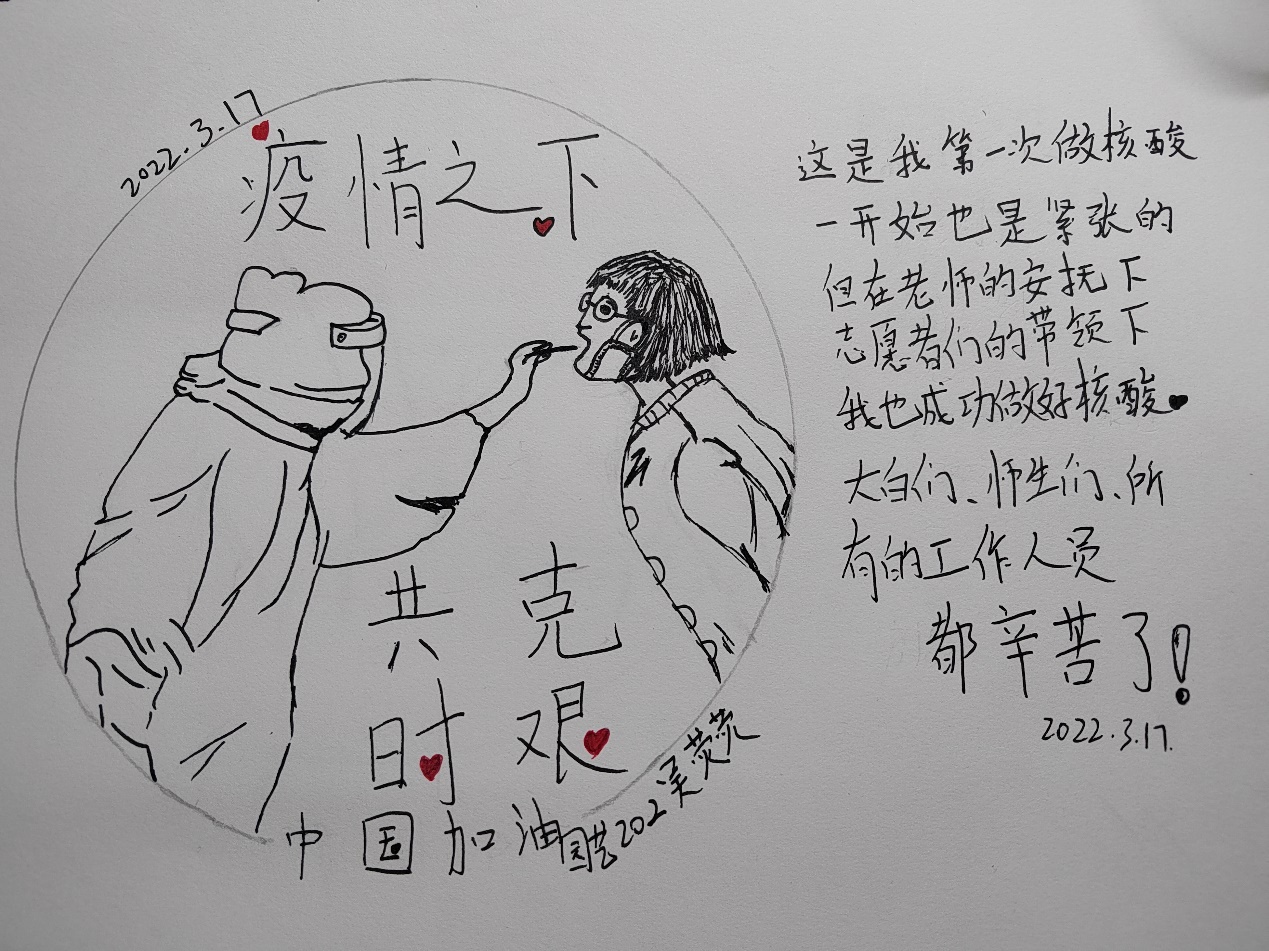 2022.3.17
疫情之下
共克
时艰
中国加油
园艺202 吴荧荧
这是我第一次做核酸
一开始也是紧张的
但在老师的安抚下
志愿者们的带领下
我也成功做好核酸
大白们、师生们、所
有的工作人员
都辛苦了!
2022.3.17.